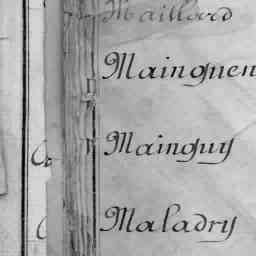 Maillard
Mainguen
Mainguy
Maladry